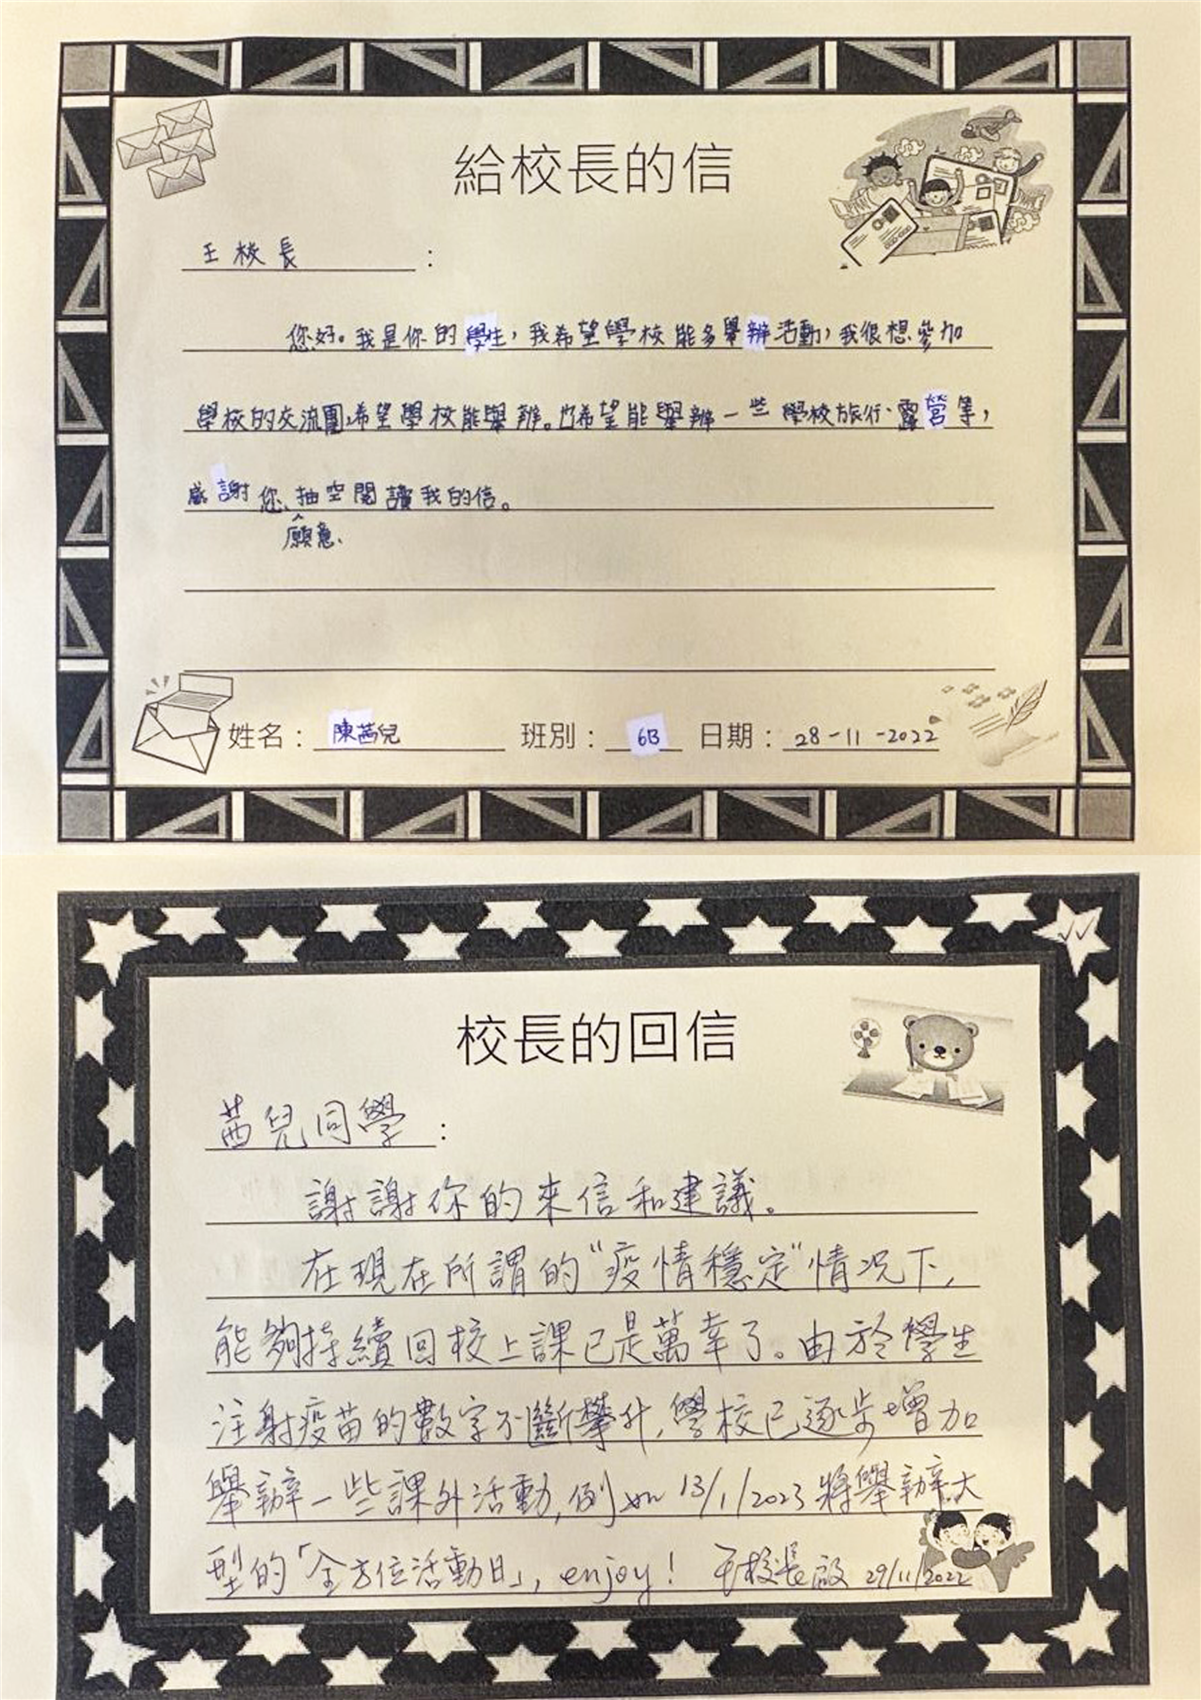 給校長的信
王校長：
您好。我是你的學生，我希望學校能多舉辦活動，我很想參加
學校的交流團，希望學校能舉辦。也希望能舉辦一些學校旅行、露營等，
感謝您抽空閱讀我的信。
願意
姓名：陳茜兒 班別：6B 日期：28-11-2022
校長的回信
茜兒同學：
謝謝你的來信和建議。
在現在所謂的“疫情穩定”情況下，
能夠持續回校上課已是萬幸了。由於學生
注射疫苗的數字不斷攀升，學校已逐步增加
舉辦一些課外活動，例如13/1/2023將舉辦大
型的「全方位活動日」，enjoy！ 王校長啟 29/11/2022